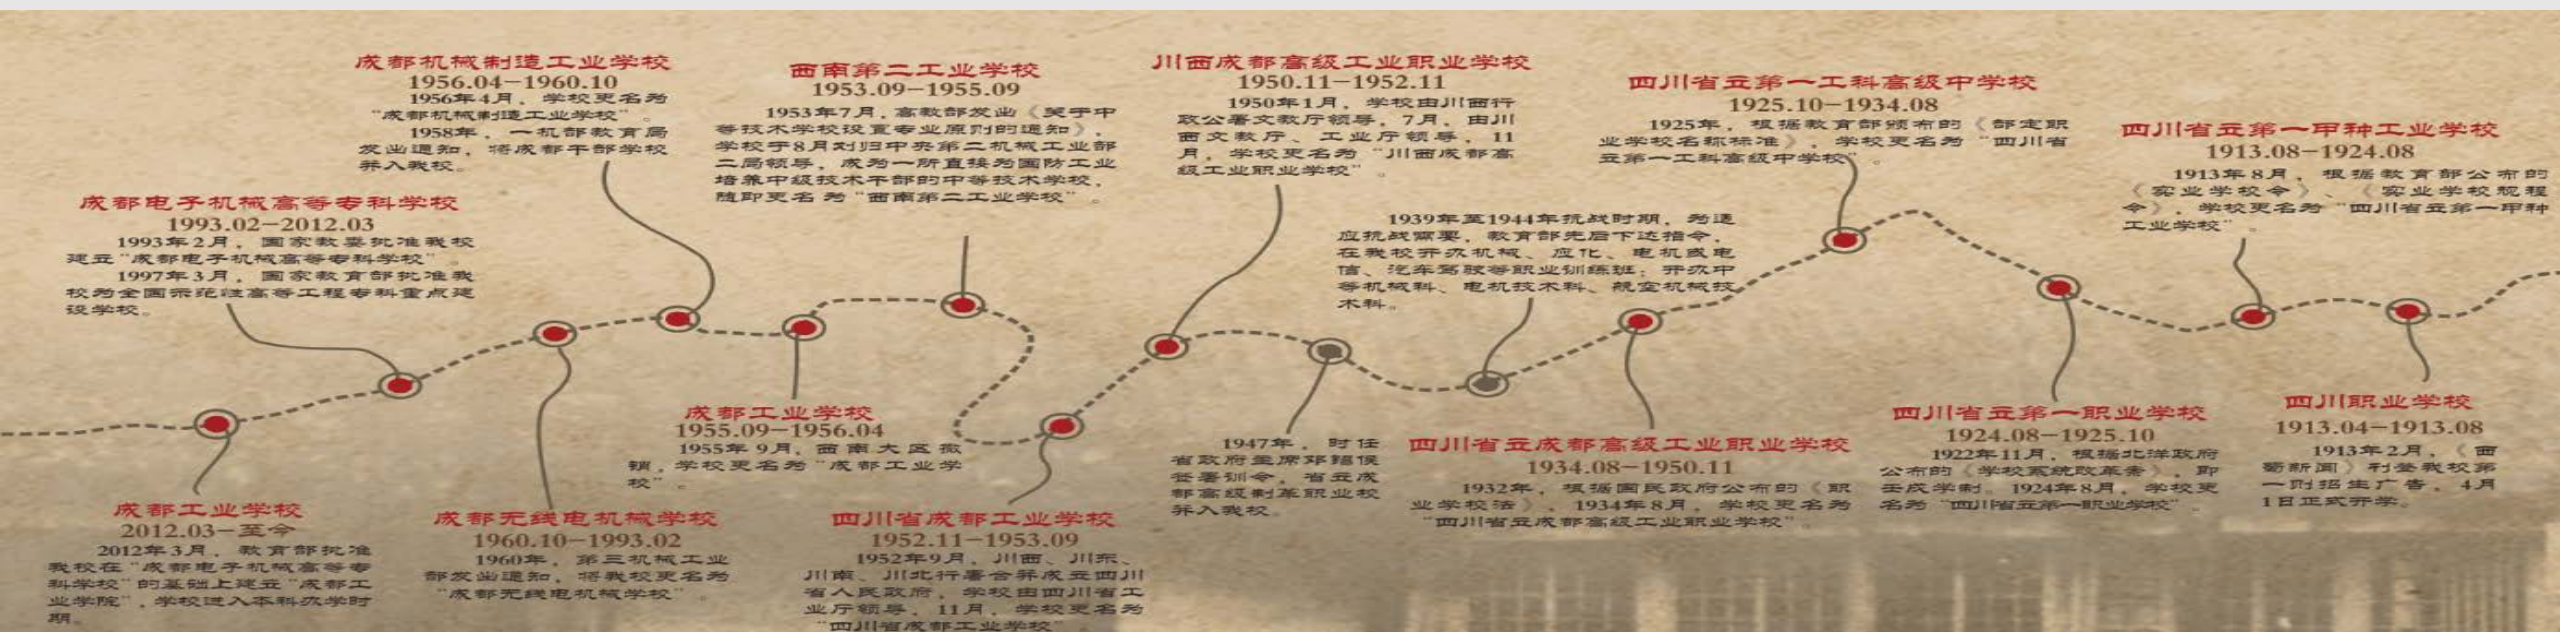 成都机械制造工业学校
1956.04—1960.10
1956年4月，学校更名为
“成都机械制造工业学校”。
1958年，一机部教育局
发出通知，将成都干部学校
并入我校。
西南第二工业学校
1953.09—1955.09
1953年7月，高教部发出《关于中
等技术学校设置专业原则的通知》，
学校于8月划归中央第二机械工业部
二局领导，成为一所直接为国防工业
培养中级技术干部的中等技术学校，
随即更名为“西南第二工业学校”。
川西成都高级工业职业学校
1950.11—1952.11
1950年1月，学校由川西行
政公署文教厅领导，7月，由川
西文教厅、工业厅领导，11
月，学校更名为“川西成都高
级工业职业学校”。
四川省立第一工科高级中学校
1925.10—1934.08
1925年，根据教育部颁布的《部定职
业学校名称标准》，学校更名为“四川省
立第一工科高级中学校”。
四川省立第一甲种工业学校
1913.08—1924.08
1913年8月，根据教育部公布的
《实业学校令》、《实业学校规程
令》，学校更名为“四川省立第一甲种
工业学校”。
成都电子机械高等专科学校
1993.02—2012.03
1993年2月，国家教委批准我校
建立“成都电子机械高等专科学校”。
1997年3月，国家教育部批准我
校为全国示范性高等工程专科重点建
设学校。
1939年至1944年抗战时期，为适
应抗战需要，教育部先后下达指令，
在我校开办机械、应化、电机或电
信、汽车驾驶等职业训练班；开办中
等机械科、电机技术科、航空机械技
术科。
成都工业学校
1955.09—1956.04
1955年9月，西南大区撤
销，学校更名为“成都工业学
校”。
1947年，时任
省政府主席邓锡侯
签署训令，省立成
都高级制革职业校
并入我校。
四川省立成都高级工业职业学校
1934.08—1950.11
1932年，根据国民政府公布的《职
业学校法》，1934年8月，学校更名为
“四川省立成都高级工业职业学校”。
四川省立第一职业学校
1924.08—1925.10
1922年11月，根据北洋政府
公布的《学校系统改革案》，即
壬戌学制，1924年8月，学校更
名为“四川省立第一职业学校”。
四川职业学校
1913.04—1913.08
1913年2月，《西
蜀新闻》刊登我校第
一则招生广告，4月
1日正式开学。
成都工业学校
2012.03—至今
2012年3月，教育部批准
我校在“成都电子机械高等专
科学校”的基础上建立“成都工
业学院”，学校进入本科办学时
期。
成都无线电机械学校
1960.10—1993.02
1960年，第三机械工业
部发出通知，将我校更名为
“成都无线电机械学校”。
四川省成都工业学校
1952.11—1953.09
1952年9月，川西、川东、
川南、川北行署合并成立四川
省人民政府，学校由四川省工
业厅领导，11月，学校更名为
“四川省成都工业学校”